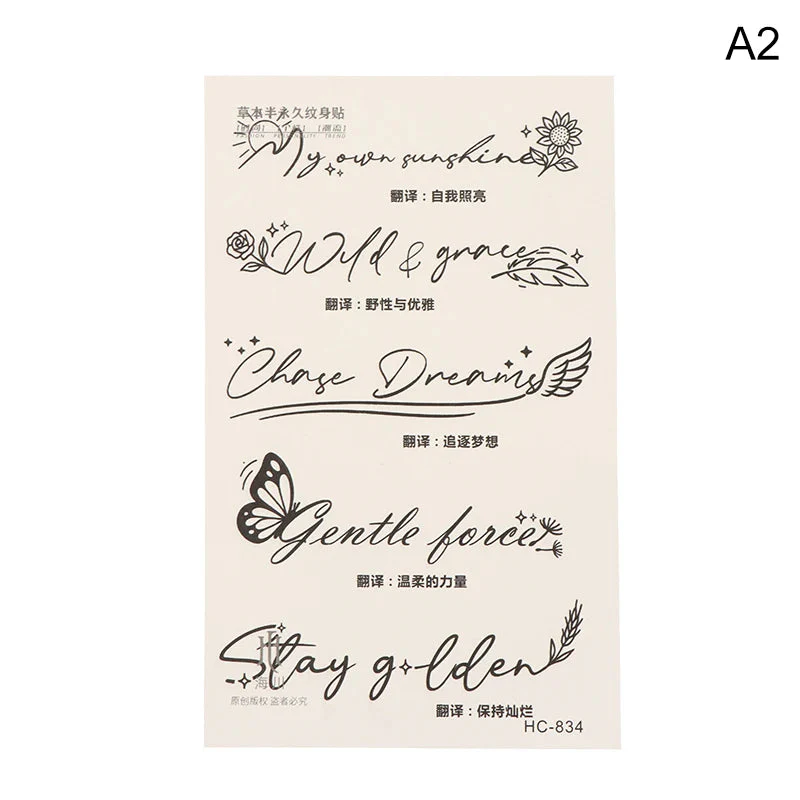 A2
草本半永久纹身贴
[时尚] [个性] [潮流]
FASHION PERSONALITY TREND
My own sunshine
翻译：自我照亮
Wild & grace
翻译：野性与优雅
Chase Dreams
翻译：追逐梦想
Gentle force
翻译：温柔的力量
Stay golden
海川
原创版权 盗者必究
翻译：保持灿烂
HC-834